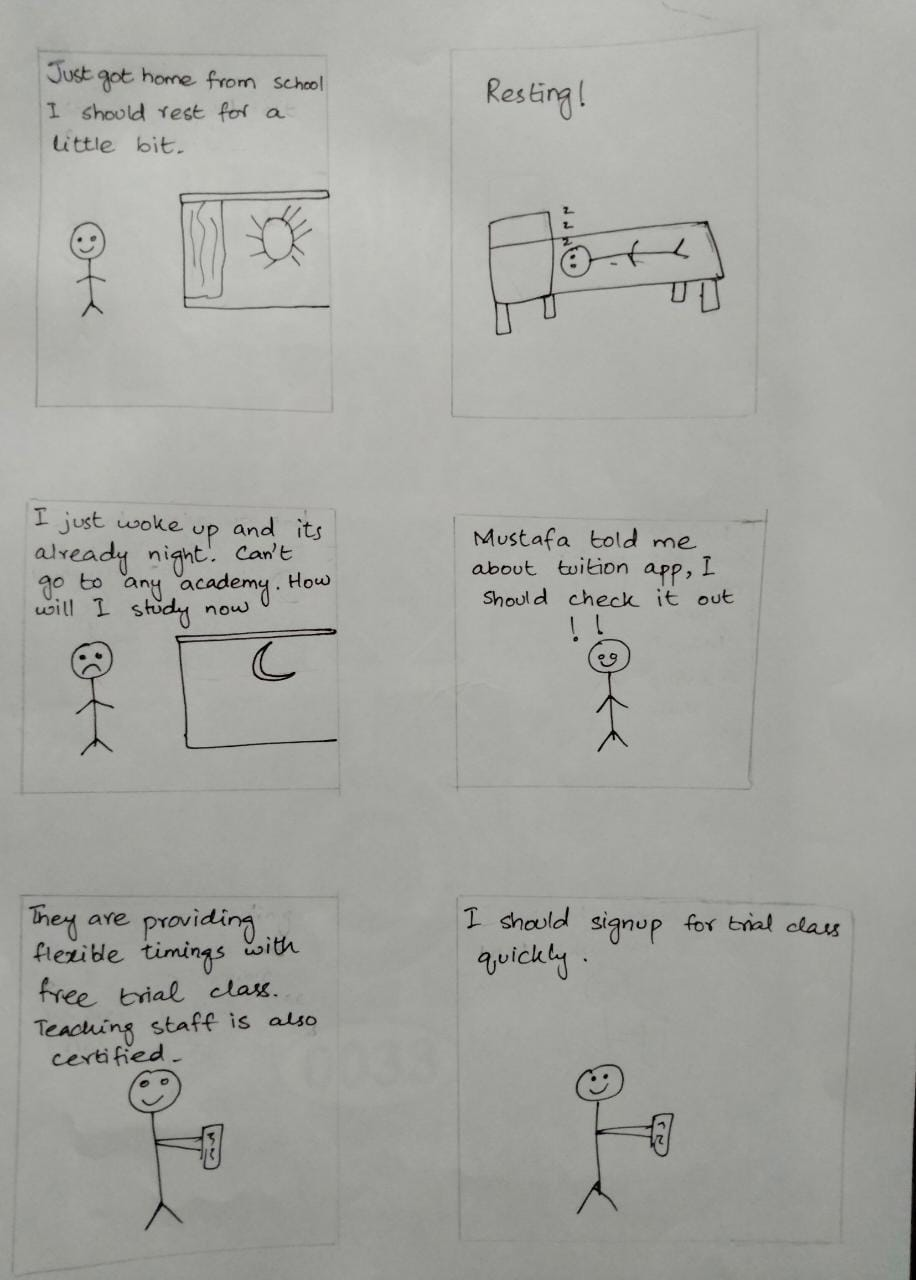 Just got home from school
I should rest for a
little bit.
Resting!
z
z
z
I just woke up and its
already night. Can't
go to any academy. How
will I study now
Mustafa told me
about tuition app, I
should check it out
!!
They are providing
flexible timings with
free trial class.
Teaching staff is also
certified.
I should signup for trial class
quickly.